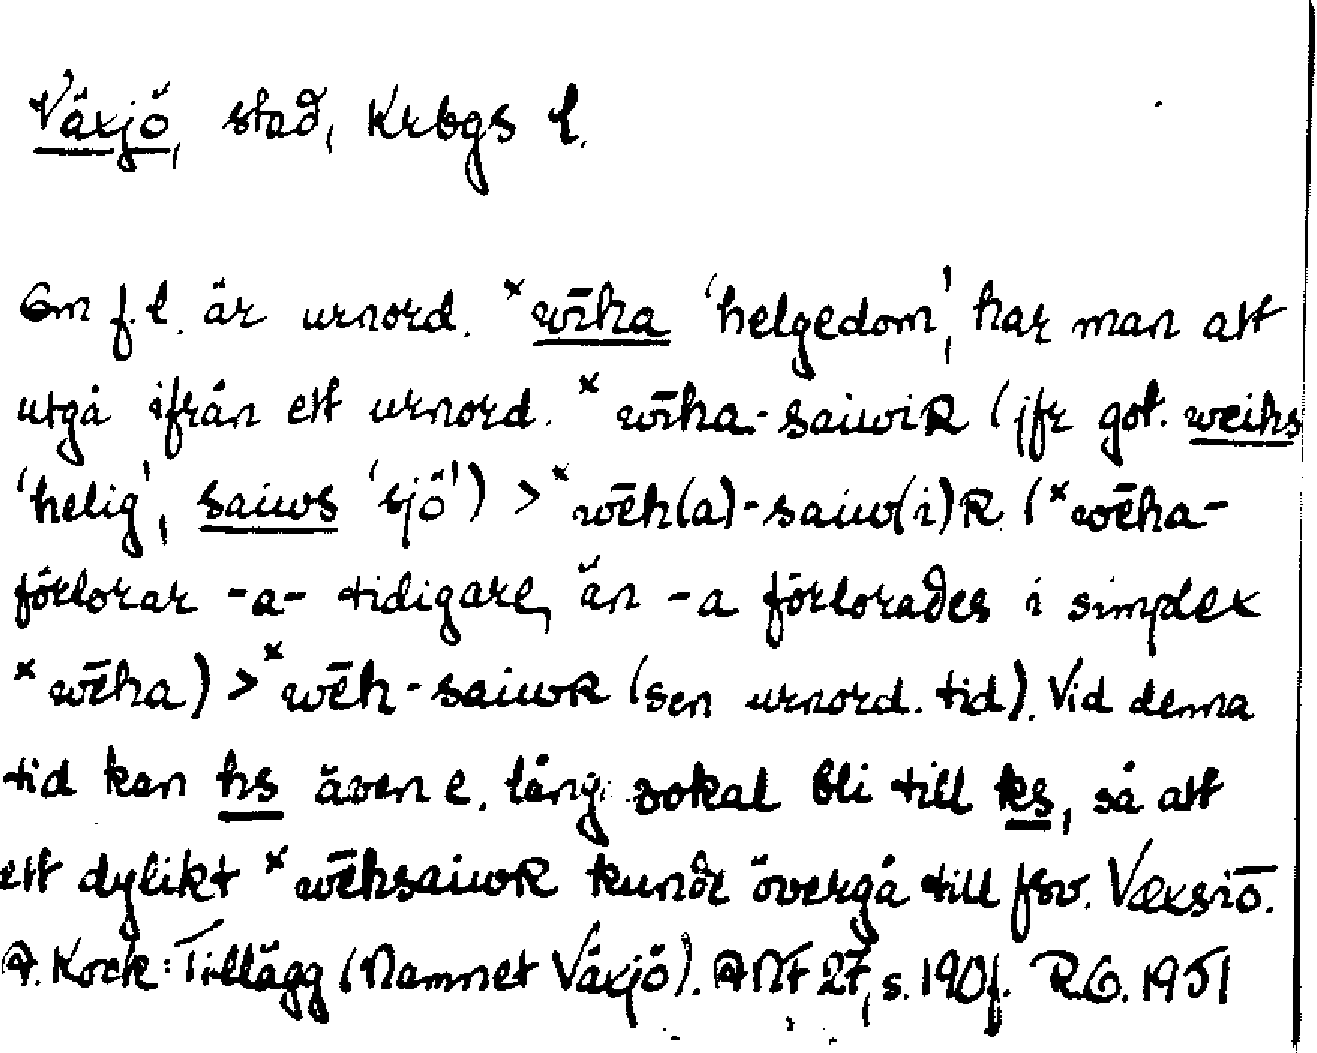 Växjö, stad, Krbgs l.
Om f.l. är urnord. *wīha 'helgedom', har man att
utgå ifrån ett urnord. *wīha-saiwiR (jfr got. weihs
'helig', saiws 'sjö') > *wēh(a)-saiw(i)R (*wēha-
förlorar -a- tidigare, än -a förlorades i simplex
*wēha) > *wēh-saiwR (sen urnord. tid). Vid denna
tid kan hs även e. lång vokal bli till ks, så att
ett dylikt *wēhsaiwR kunde övergå till fsv. Væxsiō.
A. Kock: Tillägg (Namnet Växjö). ANF 27, s. 190f. R.O. 1951